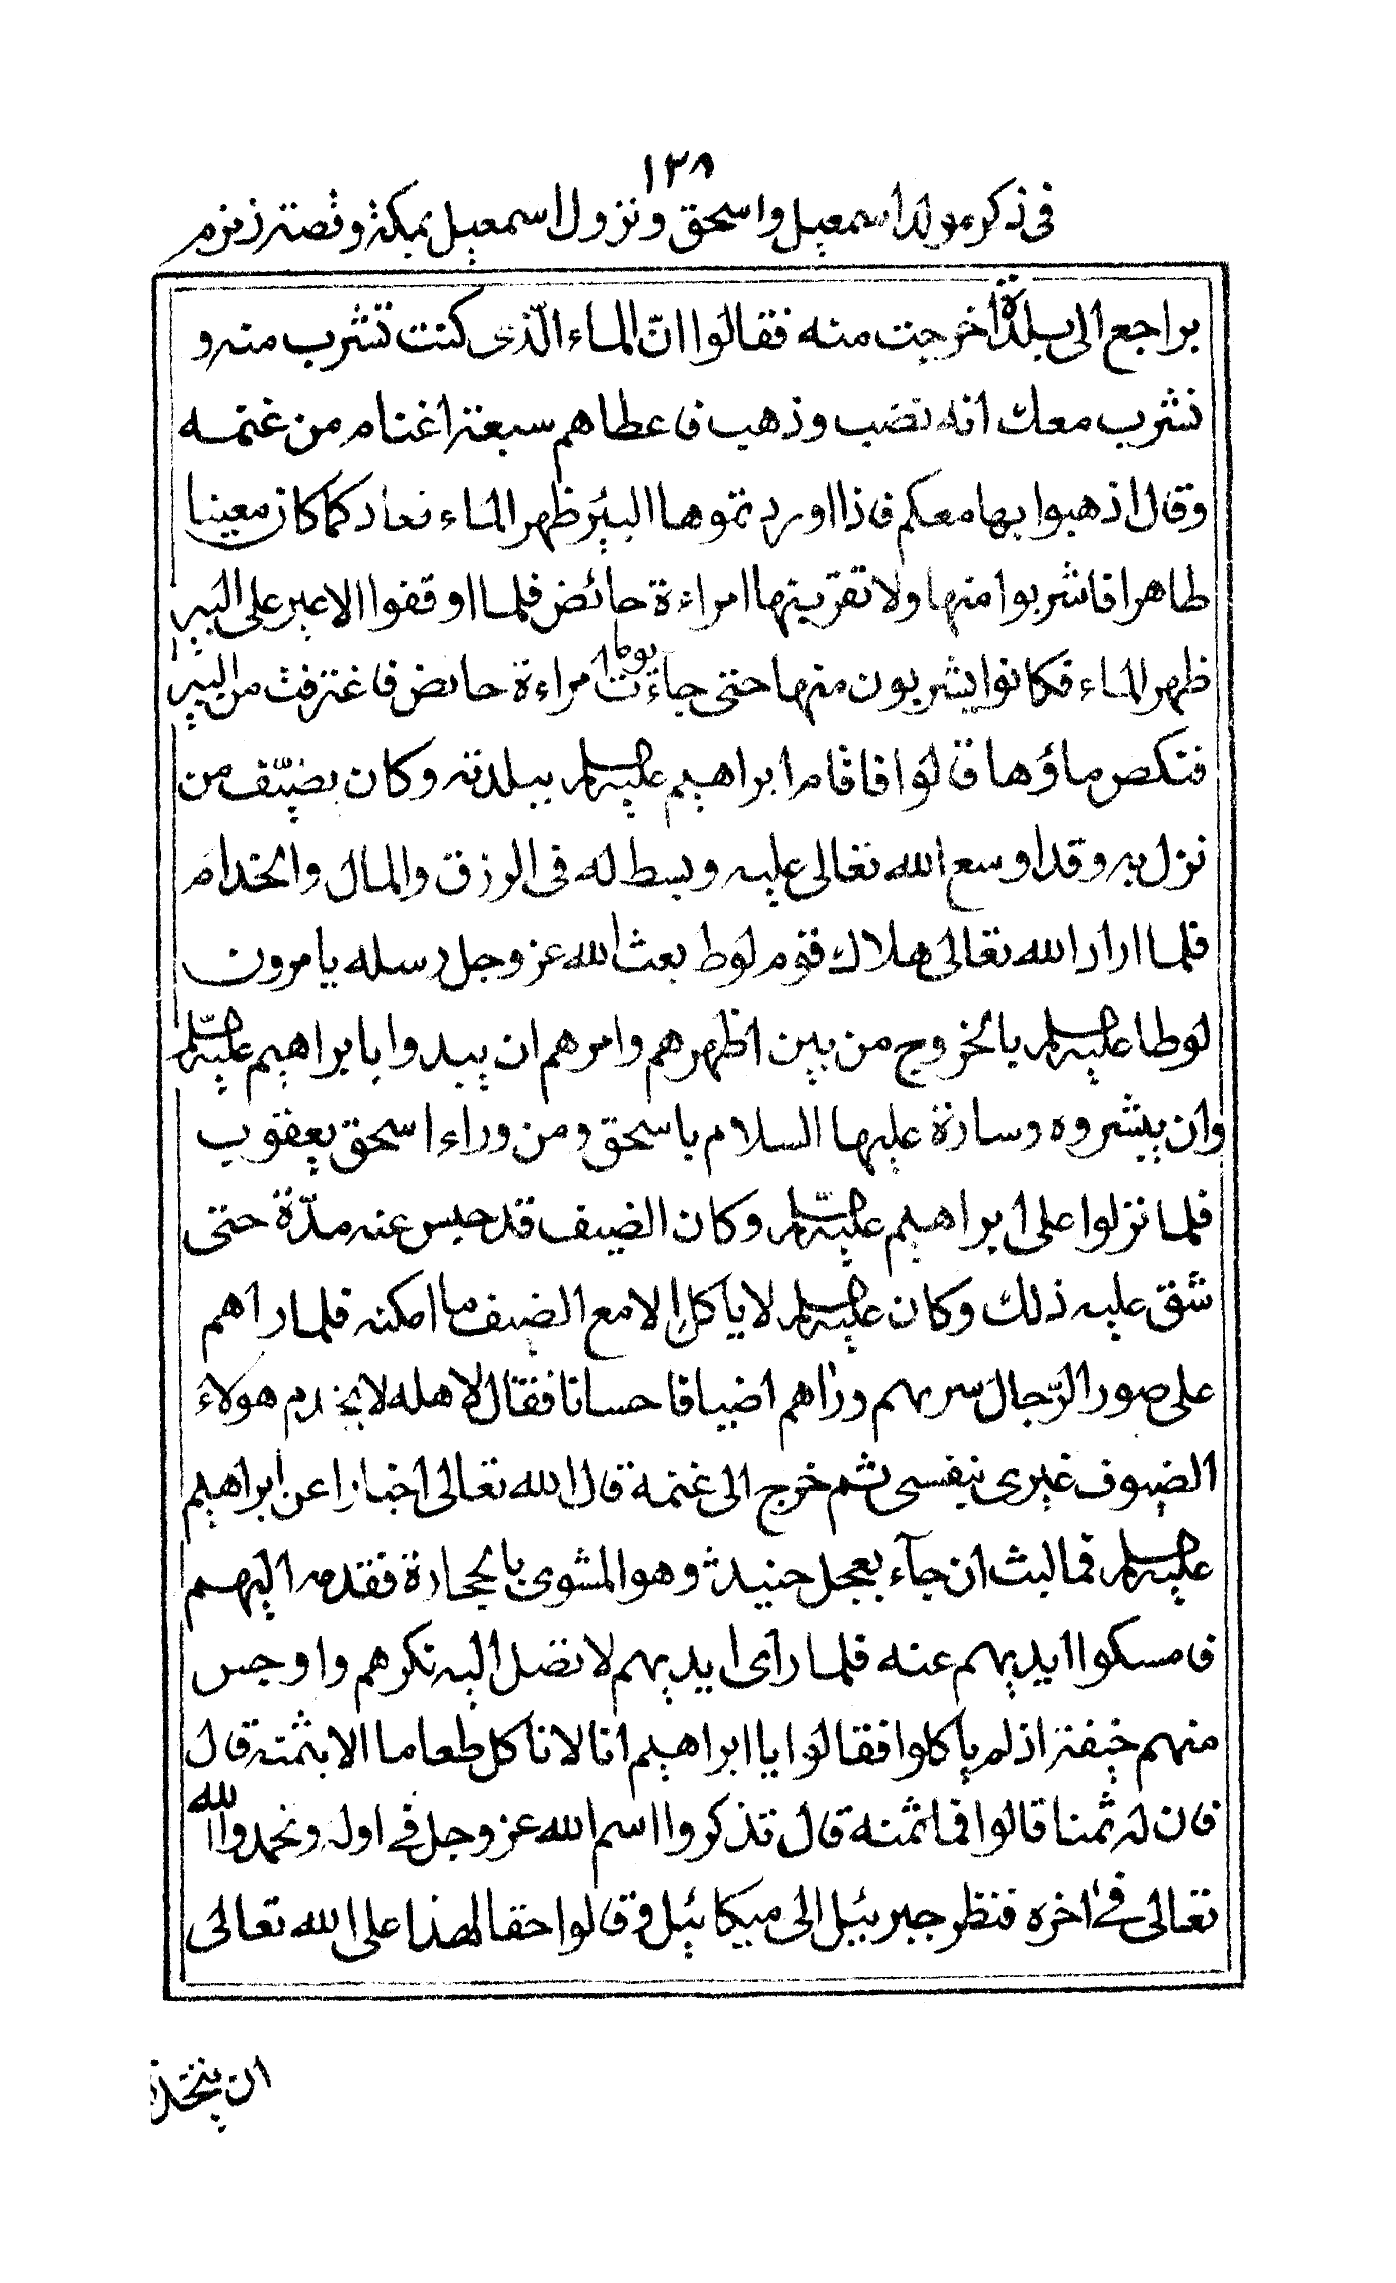 ١٣٨
فى ذكر مولد اسمعيل واسحق ونزول اسمعيل بمكة وقصة زمزم
براجع الى بلدة اخرجت منه فقالوا انّ الماء الّذى كنت تشرب منه و
نشرب معك انه نضب وذهب فاعطاهم سبعة اغنام من غنمه
وقال اذهبوا بها معكم فاذا اوردتموها البئر ظهر الماء فعاد كما كان معينا
طاهرا فاشربوا منها ولا تقربنها امراءة حائض فلما اوقفوا الاعير على البير
ظهر الماء فكانوا يشربون منها حتى جاءت يوما امراءة حائض فاغترفت من البير
فنكص ماؤها قالوا فاقام ابراهيم عليه السلم ببلدته وكان يضيّف من
نزل به وقد اوسع الله تعالى عليه وبسط له فى الرزق والمال والخدام
فلما اراد الله تعالى هلاك قوم لوط بعث الله عز وجل رسله يامرون
لوطا عليه السلم بالخروج من بين اظهرهم وامرهم ان يبدوا بابراهيم عليه السلم
وان يبشروه وسارة عليها السلام باسحق ومن وراء اسحق يعقوب
فلما نزلوا على ابراهيم عليه السلم وكان الضيف قد حبس عنه مدّة حتى
شق عليه ذلك وكان عليه السلم لا ياكل الا مع الضيف ما امكنه فلما راهم
على صور الرّجال سر بهم وراهم اضيافا حسانا فقال لاهله لا يخدم هولاء
الضيوف غيرى بنفسى ثم خرج الى غنمه قال الله تعالى اخبارا عن ابراهيم
عليه السلم فمالبث ان جآء بعجل حنيذ وهو المشوى بالحجارة فقدمه اليهم
فامسكوا ايديهم عنه فلما راى ايديهم لا تصل اليه نكرهم واوجس
منهم خيفة اذ لم ياكلوا فقالوا يا ابراهيم انا لا ناكل طعاما الا بثمنه قال
فان له ثمنا قالوا فما ثمنه قال تذكروا اسم الله عز وجل فى اوله وتحمدوا الله
تعالى فى اخره فنظر جبريئل الى ميكائيل وقالوا حقا لهذا على الله تعالى
ان يتخذ